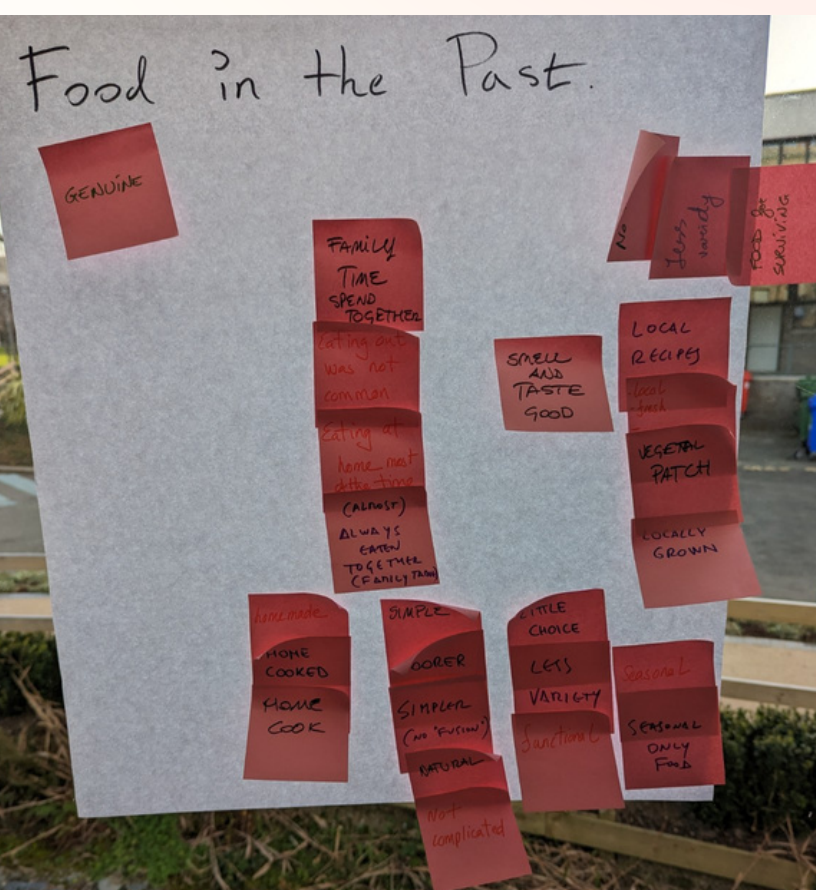 Food in the Past.
GENUINE
NO
Less
variety
FOOD for
SURVIVING
FAMILY
TIME
SPEND
TOGETHER
Eating out
was not
common
Eating at
home most
of the time
(ALMOST)
ALWAYS
EATEN
TOGETHER
(FAMILY
SMELL
AND
TASTE
GOOD
LOCAL
RECIPES
local
fresh
VEGETAL
PATCH
LOCALLY
GROWN
homemade
HOME
COOKED
HOME
COOK
SIMPLE
OORER
SIMPLER
(NO "FUSION")
NATURAL
Not
complicated
LITTLE
CHOICE
LESS
VARIETY
functional
Seasonal
SEASONAL
ONLY
FOOD